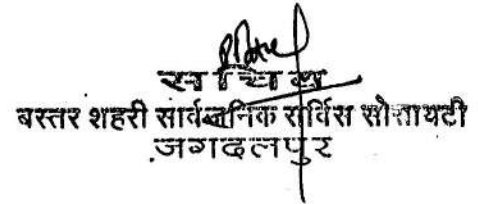 सचिव
बस्तर शहरी सार्वजनिक सर्विस सोसायटी
जगदलपुर